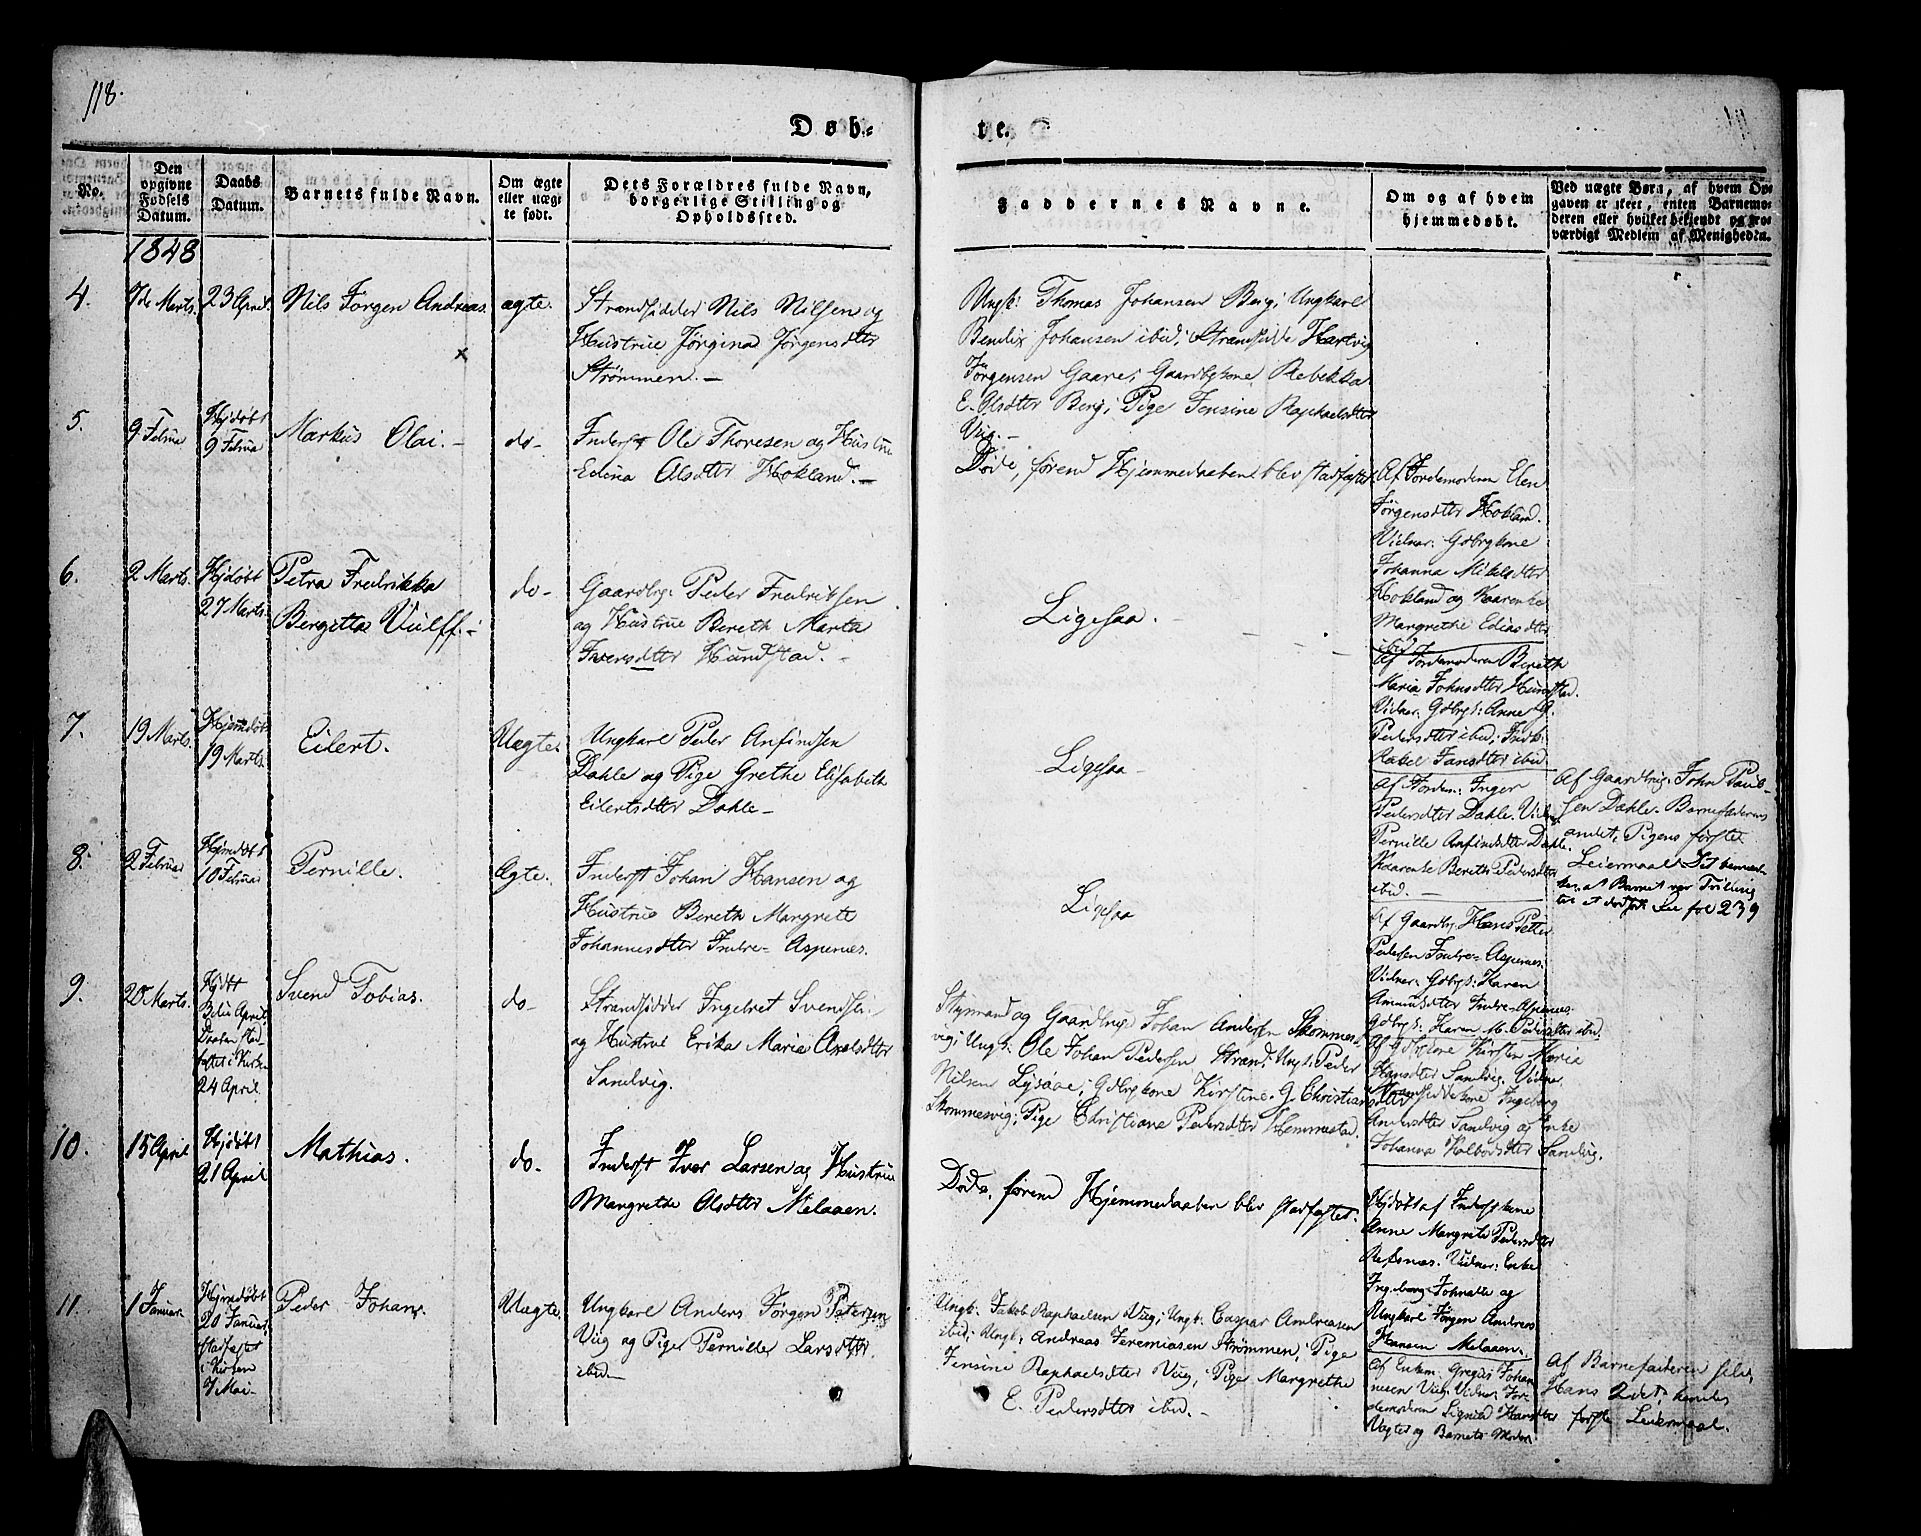 118.
Døb-
te.
No.
Den opgivne Fødsels Datum.
Daabs Datum.
Barnets fulde Navn.
Om ægte eller uægte født.
Dets Forældres fulde Navn, borgerlige Stilling og Opholdssted.
Faddernes Navne.
Om og af hvem hjemmedøbt.
Ved uægte Børn, af hvem Opgaven er skeet, enten Barnemoderen eller hvilket bekjendt og troværdigt Medlem af Menigheden.
1848
4.
7de Marts.
23 April.
Nils Jørgen Andreas.
ægte.
Strandsidder Nils Nilsen og
Hustrue Jørgina Jørgensdtr
Strømmen. —
Ungk: Thomas Johansen Berg; Ungkarl
Bendix Johansen ibid; Strandsidde Hartvig
Jørgensen Gaare; Gaardbrkone Rebekka
E. Olsdtter Berg; Pige Jensine Raphaelsdtter
Viig. —
5.
9 Februa
Hjdøbt
9 Februa
Markus Olai. —
do —
Inderst Ole Thoresen og Hustrue
Edina Olsdtter Hokland. —
Døde, førend Hjemmedaaben blev stadfæstet.
Af Jordemoderen Elen
Jørgensdtter Hokland.
Vidner: Gdbrkone
Johanna Mikelsdtter
Hokland og Kaarenke
Margrethe Ediasdtter
ibid
6.
2 Marts.
Hjdøbt
27 Marts.
Petra Fredrikka
Bergitta Vulff. —
do —
Gaardbr: Peder Fredriksen
og Hustrue Bereth Marta
Iversdtter Hundstad. —
Ligesaa.
Af Jordemoderen Bereth
Maria Johnsdtter Hundstad.
Vidner. Gdbrgs: Anne G.
Pedersdtter ibid; Indk:
Rakel Jansdtter ibid
7.
19 Marts.
Hjemdøbt
19 Marts.
Eilert.
Uægte.
Ungkarl Peder Anfindsen
Dahle og Pige Grethe Elisabeth
Eilertsdtter Dahle —
Ligesaa —
Af Jordem: Inger
Pedersdtter Dahle. Vidner
Pernille Anfindsdtter Dahle.
Kaarenke Bereth Pedersdtter
ibid. —
Af Gaardbrug: John Paul-
sen Dahle. Barnefaderens
andet, Pigens første
Leiermaal. Det bemær-
kes, at Barnet var Tvilling
See fol 239
8.
2 Februar
Hjemdøbt
10 Februar
Pernille.
Ægte.
Inderst Johan Hansen og
Hustrue Bereth Margrete
Johannesdtter Indre-Aspenes.
Ligesaa
Af Gaardbr. Hans Petter
Pedersen Indre-Aspenes.
Vidner: Gdbrgs: Karen
Ammundsdtter Indre-Aspenes
Gdbrgs: Karen M. Pedersdtter ibid.
9.
20 Marts.
Hjdøbt
April,
Daaben stad-
fæstet i Kirken
24 April.
Svend Tobias.
do —
Strandsidder Ingebret Svendsen
og Hustrue Erika Maria Axelsdtter
Sandvig.
Styrmand og Gaardbrug Johan Andersen Skommes-
vig; Ungk: Ole Johan Pedersen Strand; Ungk: Peder
Nilsen Lysaae; Gdbrkone Kirstine G. Christiansdtter
Skommesvig; Pige Christiane Pedersdtter Hemmestad.
Af Gdbrkone Kirsten Maria
Hansdtter Sandvig. Vidner
Strandsidderkone Ingeborg
Andersdtter Sandvig og Enke
Johanna Kolbodsdtter Sandvig.
10.
15 April
Hjdøbt
21 April
Mathias.
do.
Inderst Iver Larsen og Hustrue
Margrethe Olsdtter Melaaen.
Døde, førend Hjemmedaaben blev stadfæstet.
Hjdøbt af Inderstkone
Anne Margrete Pedersdtter
Refsnæs. Vidner: Enke
Ingeborg Johnsdtter og
Ungkarl Jørgen Andreas
Hansen Melaaen.
11.
1 Januar.
Hjemdøbt
20 Januar,
stadfæstet
i Kirken
7 Mai —
Peder Johan.
Uægte.
Ungkarl Anders Jørgen Petersen
Viig og Pige Pernille Larsdtter
ibid —
Ungk: Jakob Raphaelsen Viig; Ungk: Caspar Andreasen
ibid; Ungk: Andreas Jeremiasen Strømmen; Pige
Jensine Raphaelsdtter Viig, Pige Margrethe
E. Pedersdtter ibid. —
Af Enkem. Gregus Johan-
nesen Viig. Vidner: Jor-
demoderen Signild Hansdtter
Vegter og Barnets Moder.
Af Barnefaderen selv,
Hans 2det, hendes
første Leiermaal.